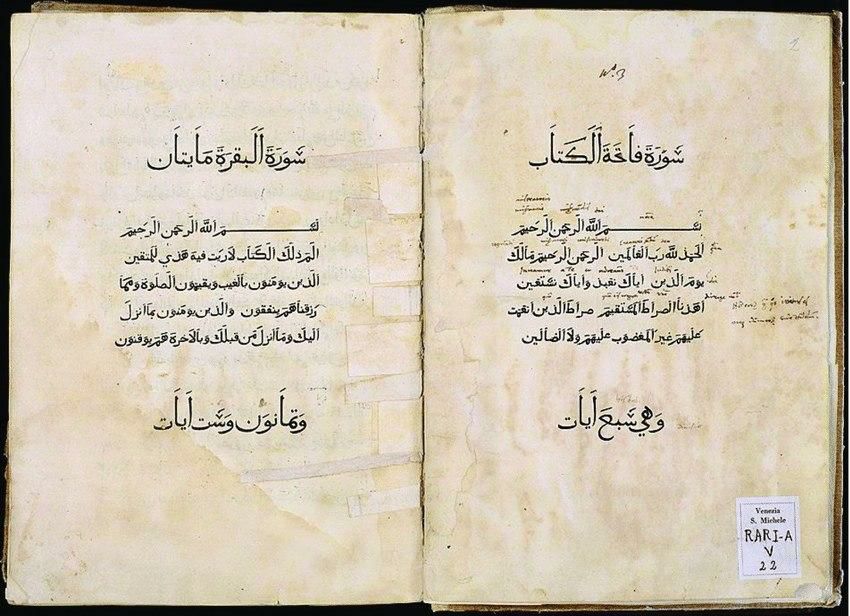 w° 3
2
سورة فاتحة الكتاب
بسم الله الرحمن الرحيم
الحمذ لله رب العالمين الرحمن الرحيم مالك
يوم الذين اياك نعبذ واياك نستعين
اهذنا الصراط المستقيم صراط الذين انعمت
عليهم غير المغضوب عليهم ولا الضالين
وهي سبع ايات
Venezia
S. Michele
RARI-A
V
22
سورة البقرة مايتان
بسم الله الرحمن الرحيم
الم ذلك الكتاب لاريب فيه هذي للمتقين
الذين يومنون بالغيب ويقيمون الصلوة ومما
رزقناهم ينفقون والذين يومنون بما انزل
اليك وما انزل من قبلك وبالاخرة هم يوقنون
وثمانون وست ايات